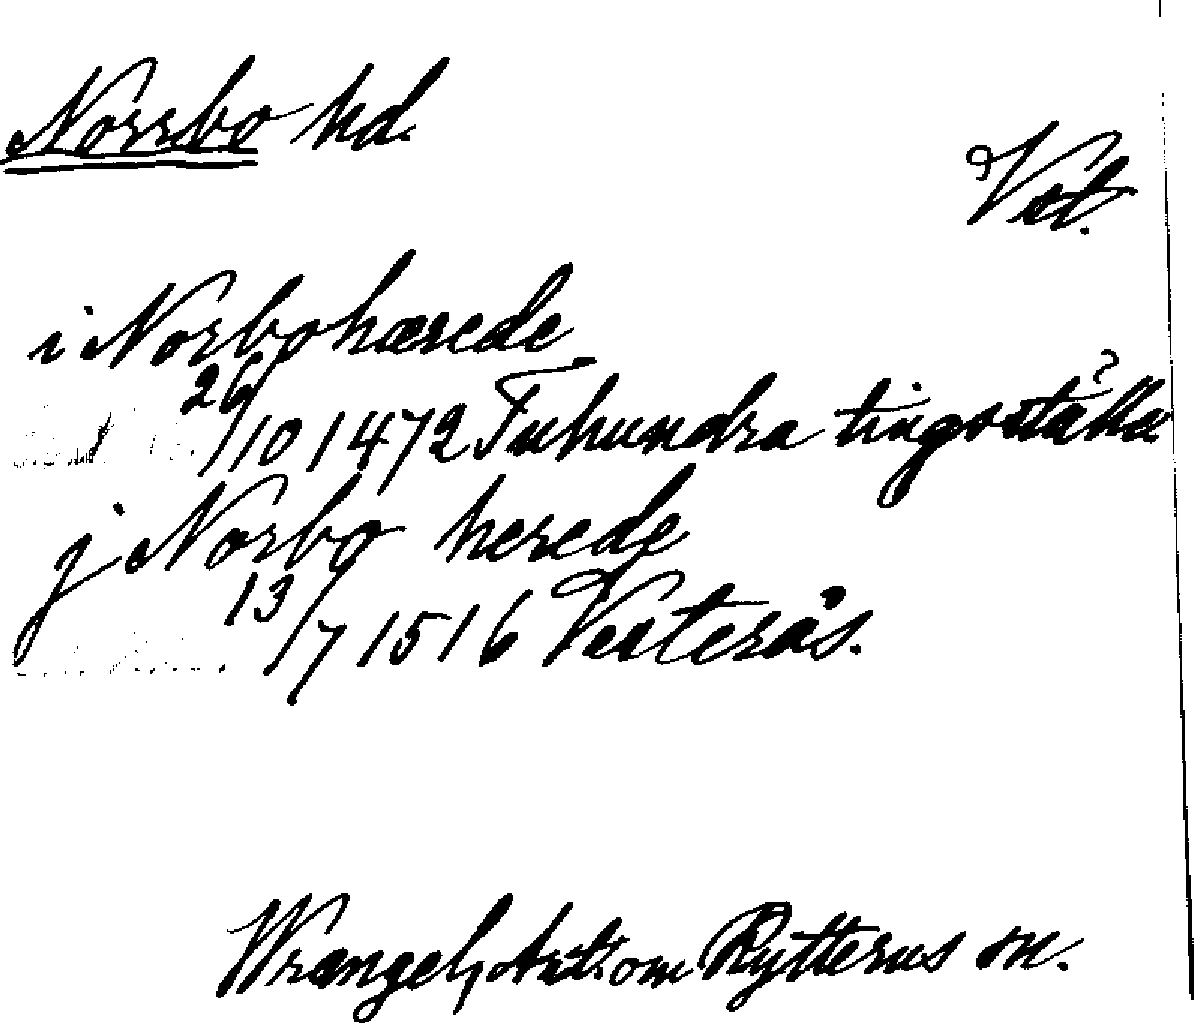 Norrbo hd.
Vst.
i Norbohærede
26/10 1472 Tuhundra tingsställe?
j Norbo herede
13/7 1516 Vesterås.
Wrangel, Ant. om Rytterus sn.